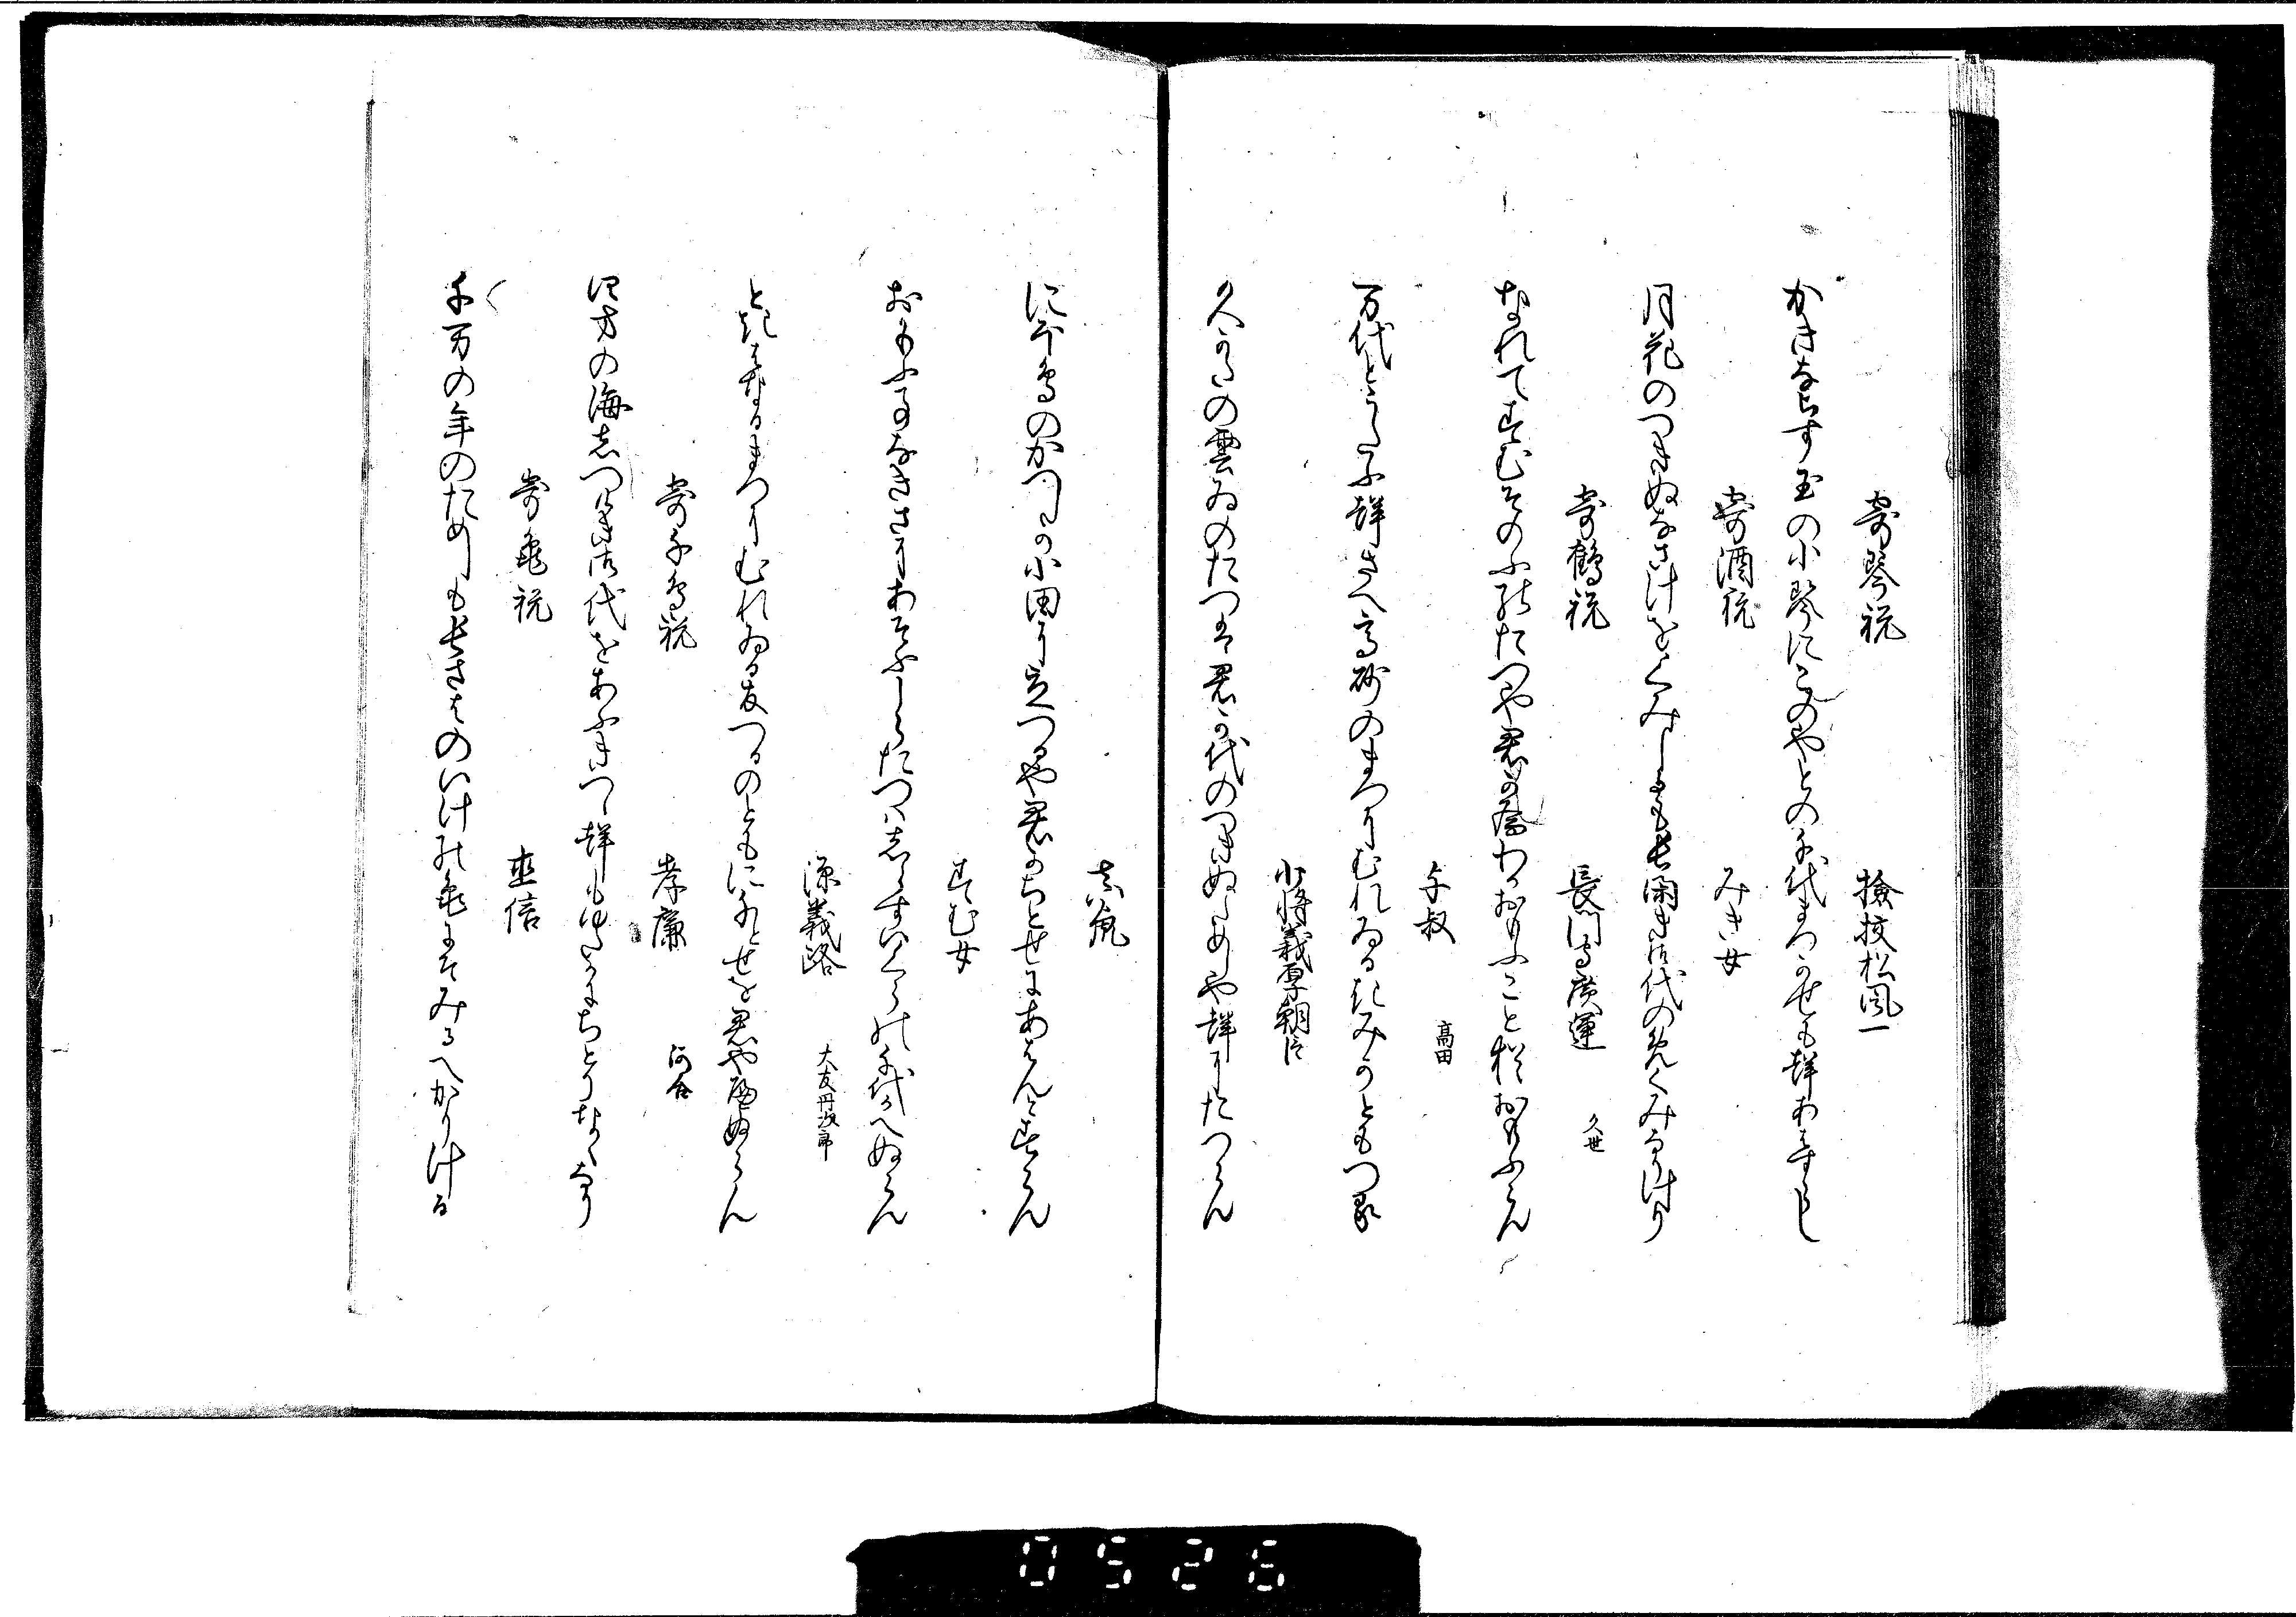 寄琴祝　検校松風一
かきならす玉の小琴にこのやとの千代まつかせも声あはすらし
寄酒祝　みき女
月花のつきぬなさけをくみしるも長閑き御代のめくみなりけり
寄鶴祝　長門守広運　久世
なれてすむそのふのたつや君か齢わかおもふこと松おもふらん
与叔　高田
万代とうたふ声さへ高砂のまつにむれゐるきみかともつる
少将義厚朝臣
久かたの雲ゐのたつは君か代のつきぬためしや声にたつらん
真風
には鳥のかつしか小田に立つるや君かちとせにあはんとすらん
すむ女
おもふことなきさにあそふしらたつはしらすいくらの千代かへぬらん
源義路　大友丹次郎
ときはなるまつにむれゐる友つるのともに千とせを君や経ぬらん
寄千鳥祝　孝廉　河合
四方の海しつけき御代をあふきつゝ声もゆたかにちとりなくなり
寄亀祝　直信
千万の年のためしも長きはのいけの亀にそみるへかりける
0526